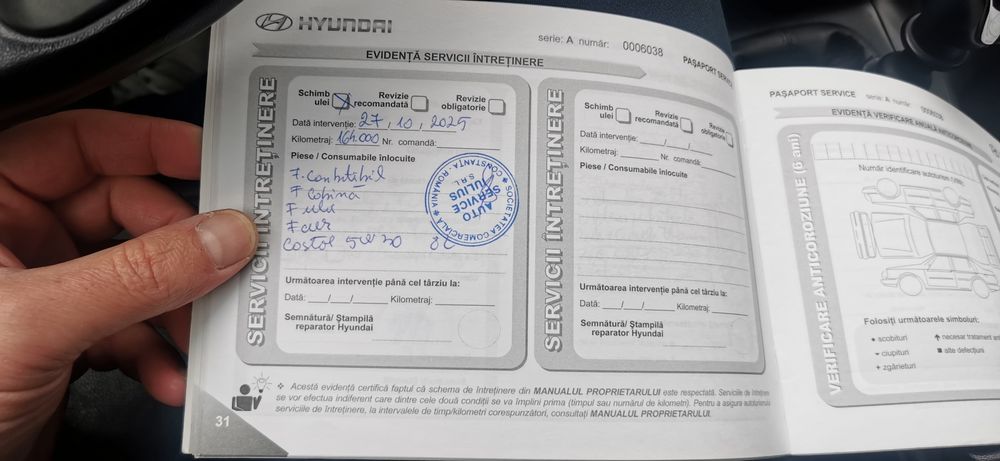 HYUNDAI
serie: A număr: 0006038
PAȘAPORT SERVICE
EVIDENȚĂ SERVICII ÎNTREȚINERE
SERVICII ÎNTREȚINERE
Schimb ulei
Revizie recomandată
Revizie obligatorie
Dată intervenție: 27 / 10 / 2025
Kilometraj: 164.000 Nr. comandă:
Piese / Consumabile înlocuite
F. combustibil
F ulei
F aer
Castrol 5W30 8L
SOCIETATEA COMERCIALĂ
AUTO
SERVICE
IULIUS
S.R.L.
CONSTANȚA - ROMÂNIA
Următoarea intervenție până cel târziu la:
Dată: ___/___/___ Kilometraj:
Semnătură/ Ștampilă
reparator Hyundai
SERVICII ÎNTREȚINERE
Schimb ulei
Revizie recomandată
Revizie obligatorie
Dată intervenție: / /
Kilometraj: Nr. comandă:
Piese / Consumabile înlocuite
Următoarea intervenție până cel târziu la:
Dată: ___/___/___ Kilometraj:
Semnătură/ Ștampilă
reparator Hyundai
❖ Acestă evidență certifică faptul că schema de întreținere din MANUALUL PROPRIETARULUI este respectată. Serviciile de întreținere
se vor efectua indiferent care dintre cele două condiții se va împlini prima (timpul sau numărul de kilometri). Pentru a asigura autoturismului
serviciile de întreținere, la intervalele de timp/kilometri corespunzători, consultați MANUALUL PROPRIETARULUI.
31
PAȘAPORT SERVICE serie: A număr: 0006038
EVIDENȚĂ VERIFICARE ANUALĂ ANTICOROZIUNE
VERIFICARE ANTICOROZIUNE (6 ani)
Număr identificare autoturism (VIN):
Folosiți următoarele simboluri:
scobituri
necesar tratament
ciupituri
alte defecțiuni
+ zgârieturi